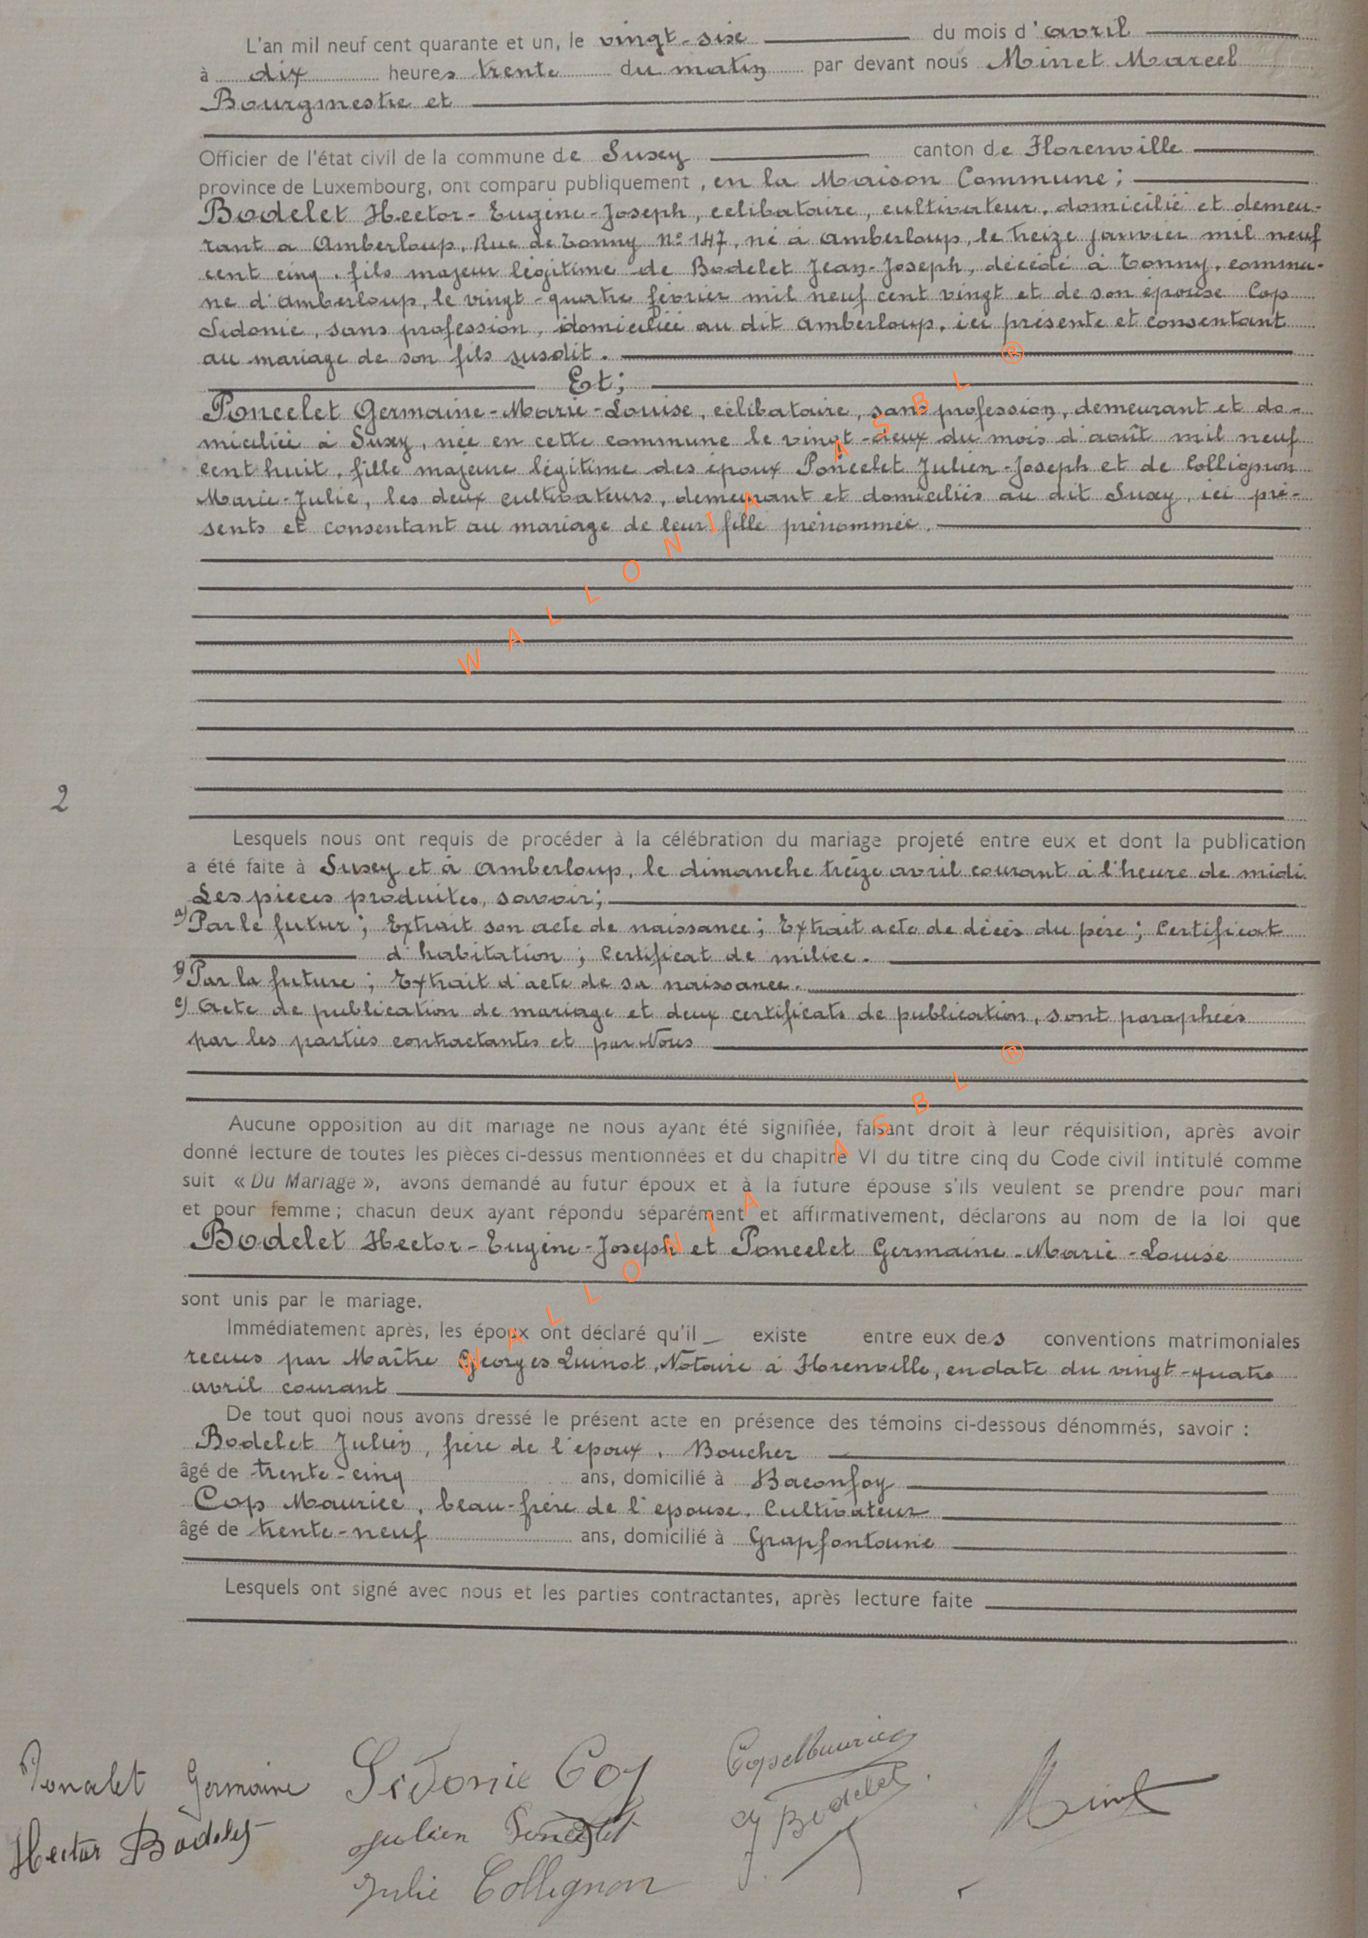 L'an mil neuf cent quarante et un, le vingt-six du mois d'avril
à dix heures trente du matin par devant nous Minet Marcel
Bourgmestre et
Officier de l'état civil de la commune de Suxy canton de Florenville
province de Luxembourg, ont comparu publiquement, en la Maison Commune;
Bodelet Hector-Eugène-Joseph, célibataire, cultivateur, domicilié et demeu-
rant à Amberloup, Rue de Tonny No 147, né à Amberloup, le treize janvier mil neuf
cent cinq, fils majeur légitime de Bodelet Jean-Joseph, décédé à Tonny, commu-
ne d'Amberloup, le vingt-quatre février mil neuf cent vingt et de son épouse Cop
Sidonie, sans profession, domiciliée au dit Amberloup, ici présente et consentant
au mariage de son fils susdit.
Et;
Poncelet Germaine-Marie-Louise, célibataire, sans profession, demeurant et do-
miciliée à Suxy, née en cette commune le vingt-deux du mois d'août mil neuf
cent huit, fille majeure légitime des époux Poncelet Julien-Joseph et de Collignon
Marie-Julie, les deux cultivateurs, demeurant et domiciliés au dit Suxy, ici pré-
sents et consentant au mariage de leur fille prénommée.
WALLONIA ASBL ®
2
Lesquels nous ont requis de procéder à la célébration du mariage projeté entre eux et dont la publication
a été faite à Suxy et à Amberloup, le dimanche treize avril courant à l'heure de midi.
Les pièces produites, savoir;
a) Par le futur; Extrait son acte de naissance; Extrait acte de décès du père; Certificat
d'habitation; Certificat de milice.
b) Par la future; Extrait d'acte de sa naissance.
c) Acte de publication de mariage et deux certificats de publication, sont paraphées
par les parties contractantes et par Nous
Aucune opposition au dit mariage ne nous ayant été signifiée, faisant droit à leur réquisition, après avoir
donné lecture de toutes les pièces ci-dessus mentionnées et du chapitre VI du titre cinq du Code civil intitulé comme
suit « Du Mariage », avons demandé au futur époux et à la future épouse s'ils veulent se prendre pour mari
et pour femme; chacun deux ayant répondu séparément et affirmativement, déclarons au nom de la loi que
Bodelet Hector-Eugène-Joseph et Poncelet Germaine-Marie-Louise
sont unis par le mariage.
WALLONIA ASBL ®
Immédiatement après, les époux ont déclaré qu'il existe entre eux des conventions matrimoniales
recues par Maître Georges Quinot, Notaire à Florenville, en date du vingt-quatre
avril courant
De tout quoi nous avons dressé le présent acte en présence des témoins ci-dessous dénommés, savoir :
Bodelet Julien, frère de l'époux, Boucher
âgé de trente-cinq ans, domicilié à Baconfoy
Cop Maurice, beau-frère de l'épouse, Cultivateur
âgé de trente-neuf ans, domicilié à Grapfontaine
Lesquels ont signé avec nous et les parties contractantes, après lecture faite
Poncelet Germaine
Sidonie Cop
Cop Maurice
Hector Bodelet
Julien Poncelet
J Bodelet
Minet
Julie Collignon